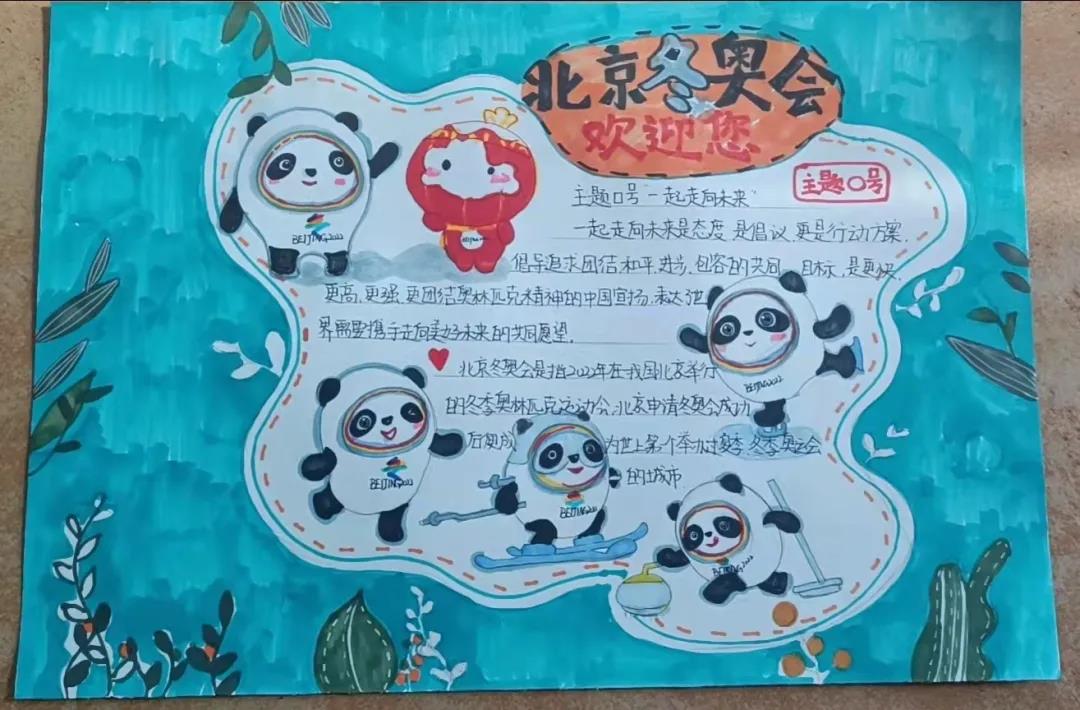 北京冬奥会
欢迎您
主题口号
主题口号"一起走向未来"
一起走向未来是态度.是倡议.更是行动方案.
倡导追求团结.和平.进步.包容的共同 目标.是更快.
更高.更强.更团结奥林匹克精神的中国宣扬.表达世
界需要携手走向美好未来的共同愿望.
北京冬奥会是指2022年在我国北京举行
的冬季奥林匹克运动会.北京申请冬奥会成功
后 成 为世上第个举办过夏季冬季奥运会
的城市
BEIJING2022
BEIJING2022
BEIJING2022
BEIJING2022
BEIJING2022